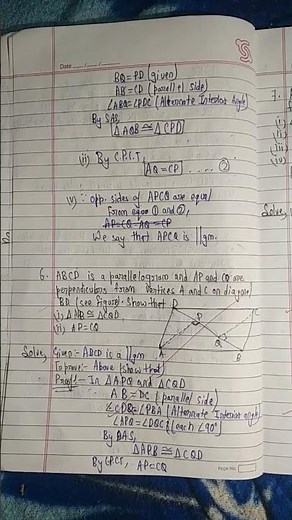 Date ___/___/___
BQ = PD (given)
AB = CD (parallel side)
∠ABQ = ∠PDC (Alternate Interior Angle)
By SAS,
△AQB ≅ △CPD
(iv) By C.P.C.T,
AQ = CP ..... ②
v) ∵ opp. sides of APCQ are equal
From eqⁿ ① and ②,
AP=CQ AQ = CP
We say that APCQ is ||gm.
6. ABCD is a parallelogram and AP and CQ are
perpendiculars from vertices A and C on diagonal
BD (see Figure). Show that
i) △APB ≅ △CQD
(ii) AP = CQ
D
C
P
Q
A
B
Solve, Given:- ABCD is a ||gm
To prove:- Above (show that)
Proof:- In △APQ and △CQD
AB = DC (parallel side)
∠CDQ = ∠PBA (Alternate Interior angle)
∠APQ = ∠DQC (each ∠90°)
By AAS,
△APB ≅ △CQD
By CPCT, AP = CQ
PAGE NO.
7.
(i)
(ii)
(iii)
(iv)
Solve,